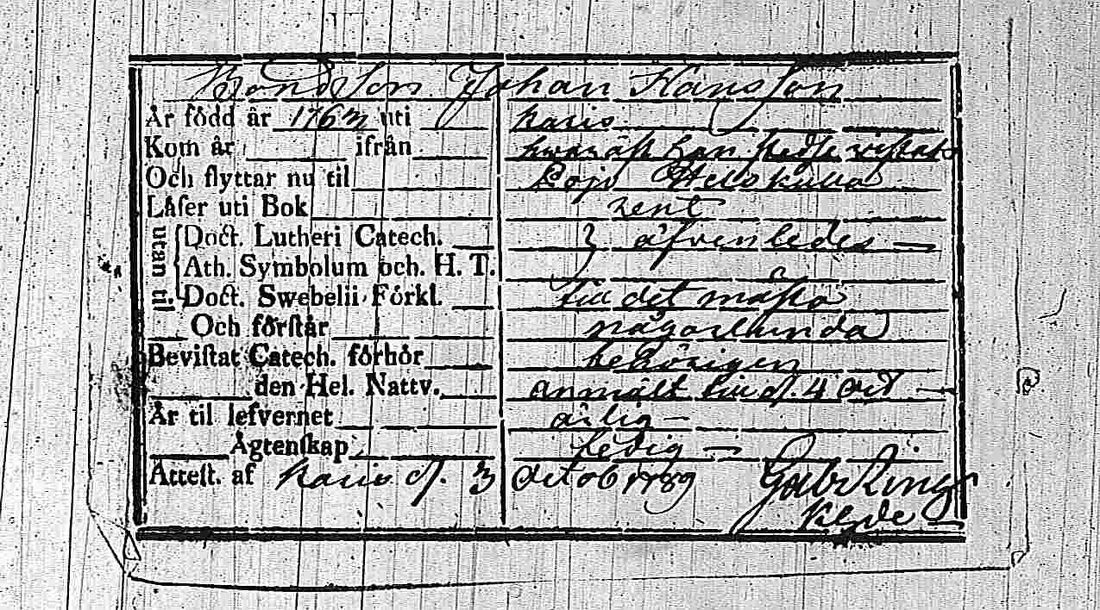 Bondeson Johan Hansson
År född år 1763 uti Karis
Kom år ifrån hwaräst han stedse wistats
Och flyttar nu til Pojo
Läser uti Bok rent
utan til. Doct. Lutheri Catech. äfvenledes
Ath. Symbolum och. H. T.
Doct. Swebelii Förkl. til det mästa
Och förstår någorlunda
Bevistat Catech. förhör behörigen
den Hel. Nattv. anmält til d. 4 Oct
År til lefvernet ärlig
Ägtenskap ledig
Attest. af Karis d. 3 Octob 1789 Gab